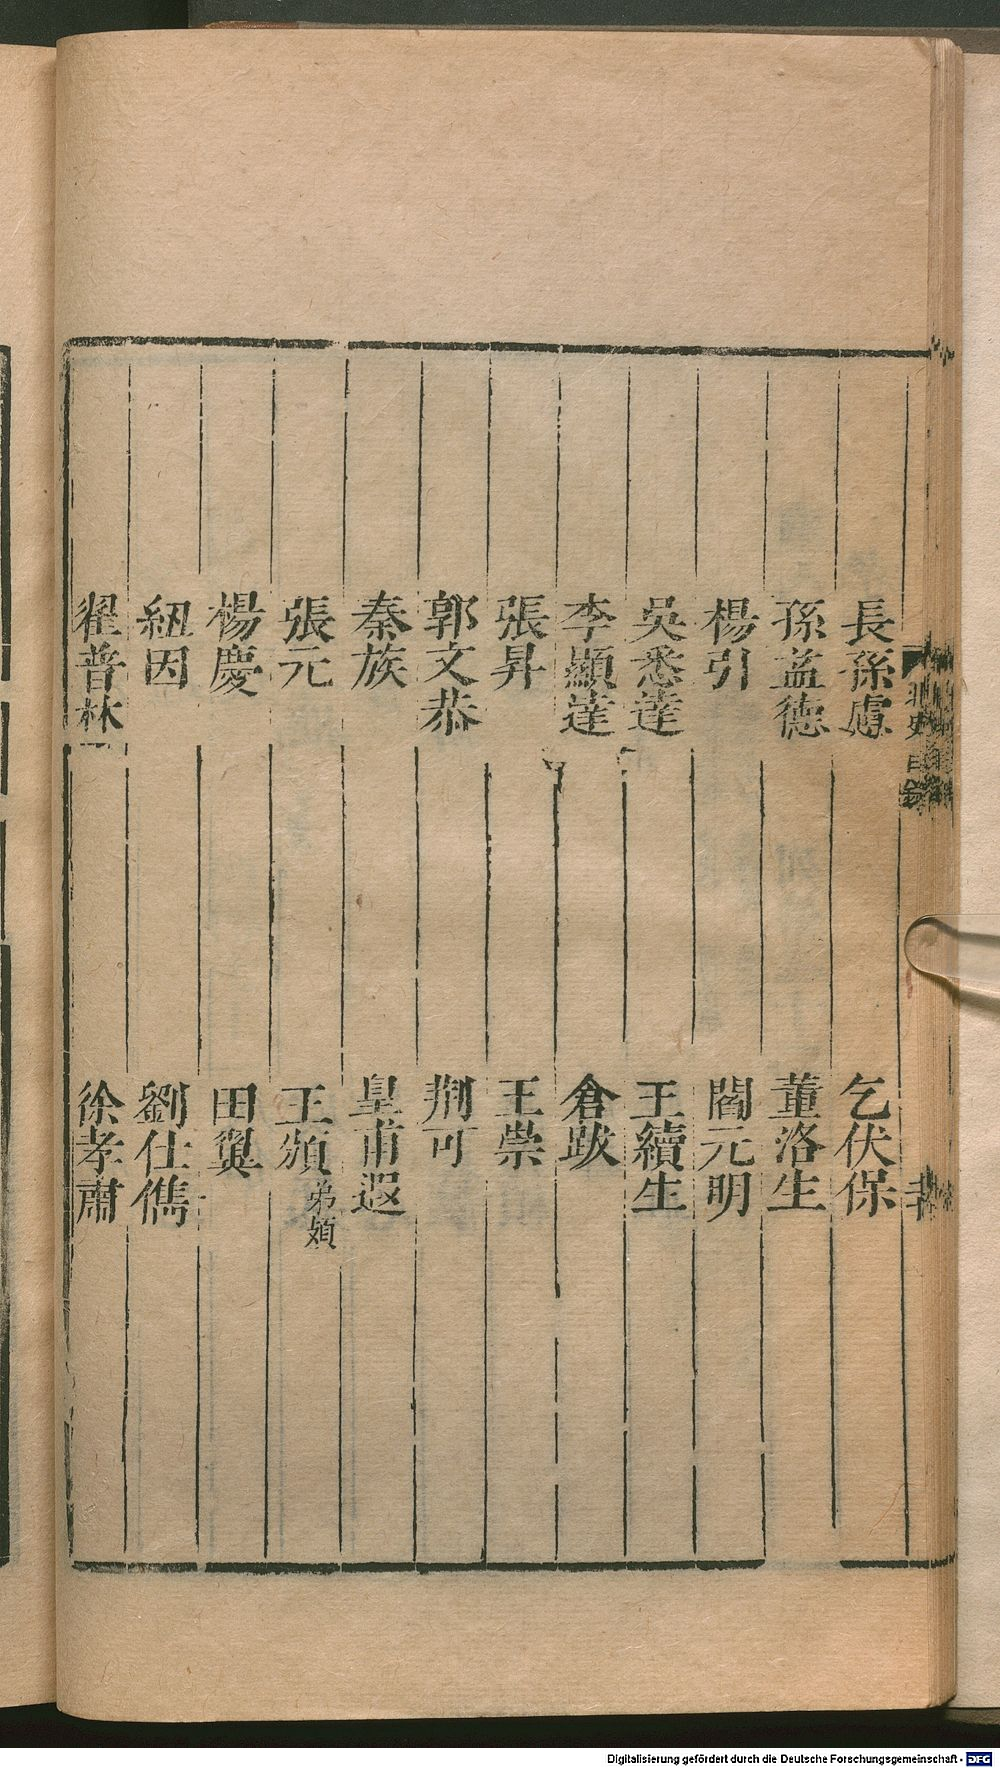 長孫慮　乞伏保
孫益德　董洛生
楊引　閻元明
吳悉達　王續生
李顯達　倉跋
張昇　王崇
郭文恭　荆可
秦族　皇甫遐
張元　王頒弟頍
楊慶　田翼
紐因　劉仕儁
翟普林　徐孝肅
北史目錄
Digitalisierung gefördert durch die Deutsche Forschungsgemeinschaft - DFG